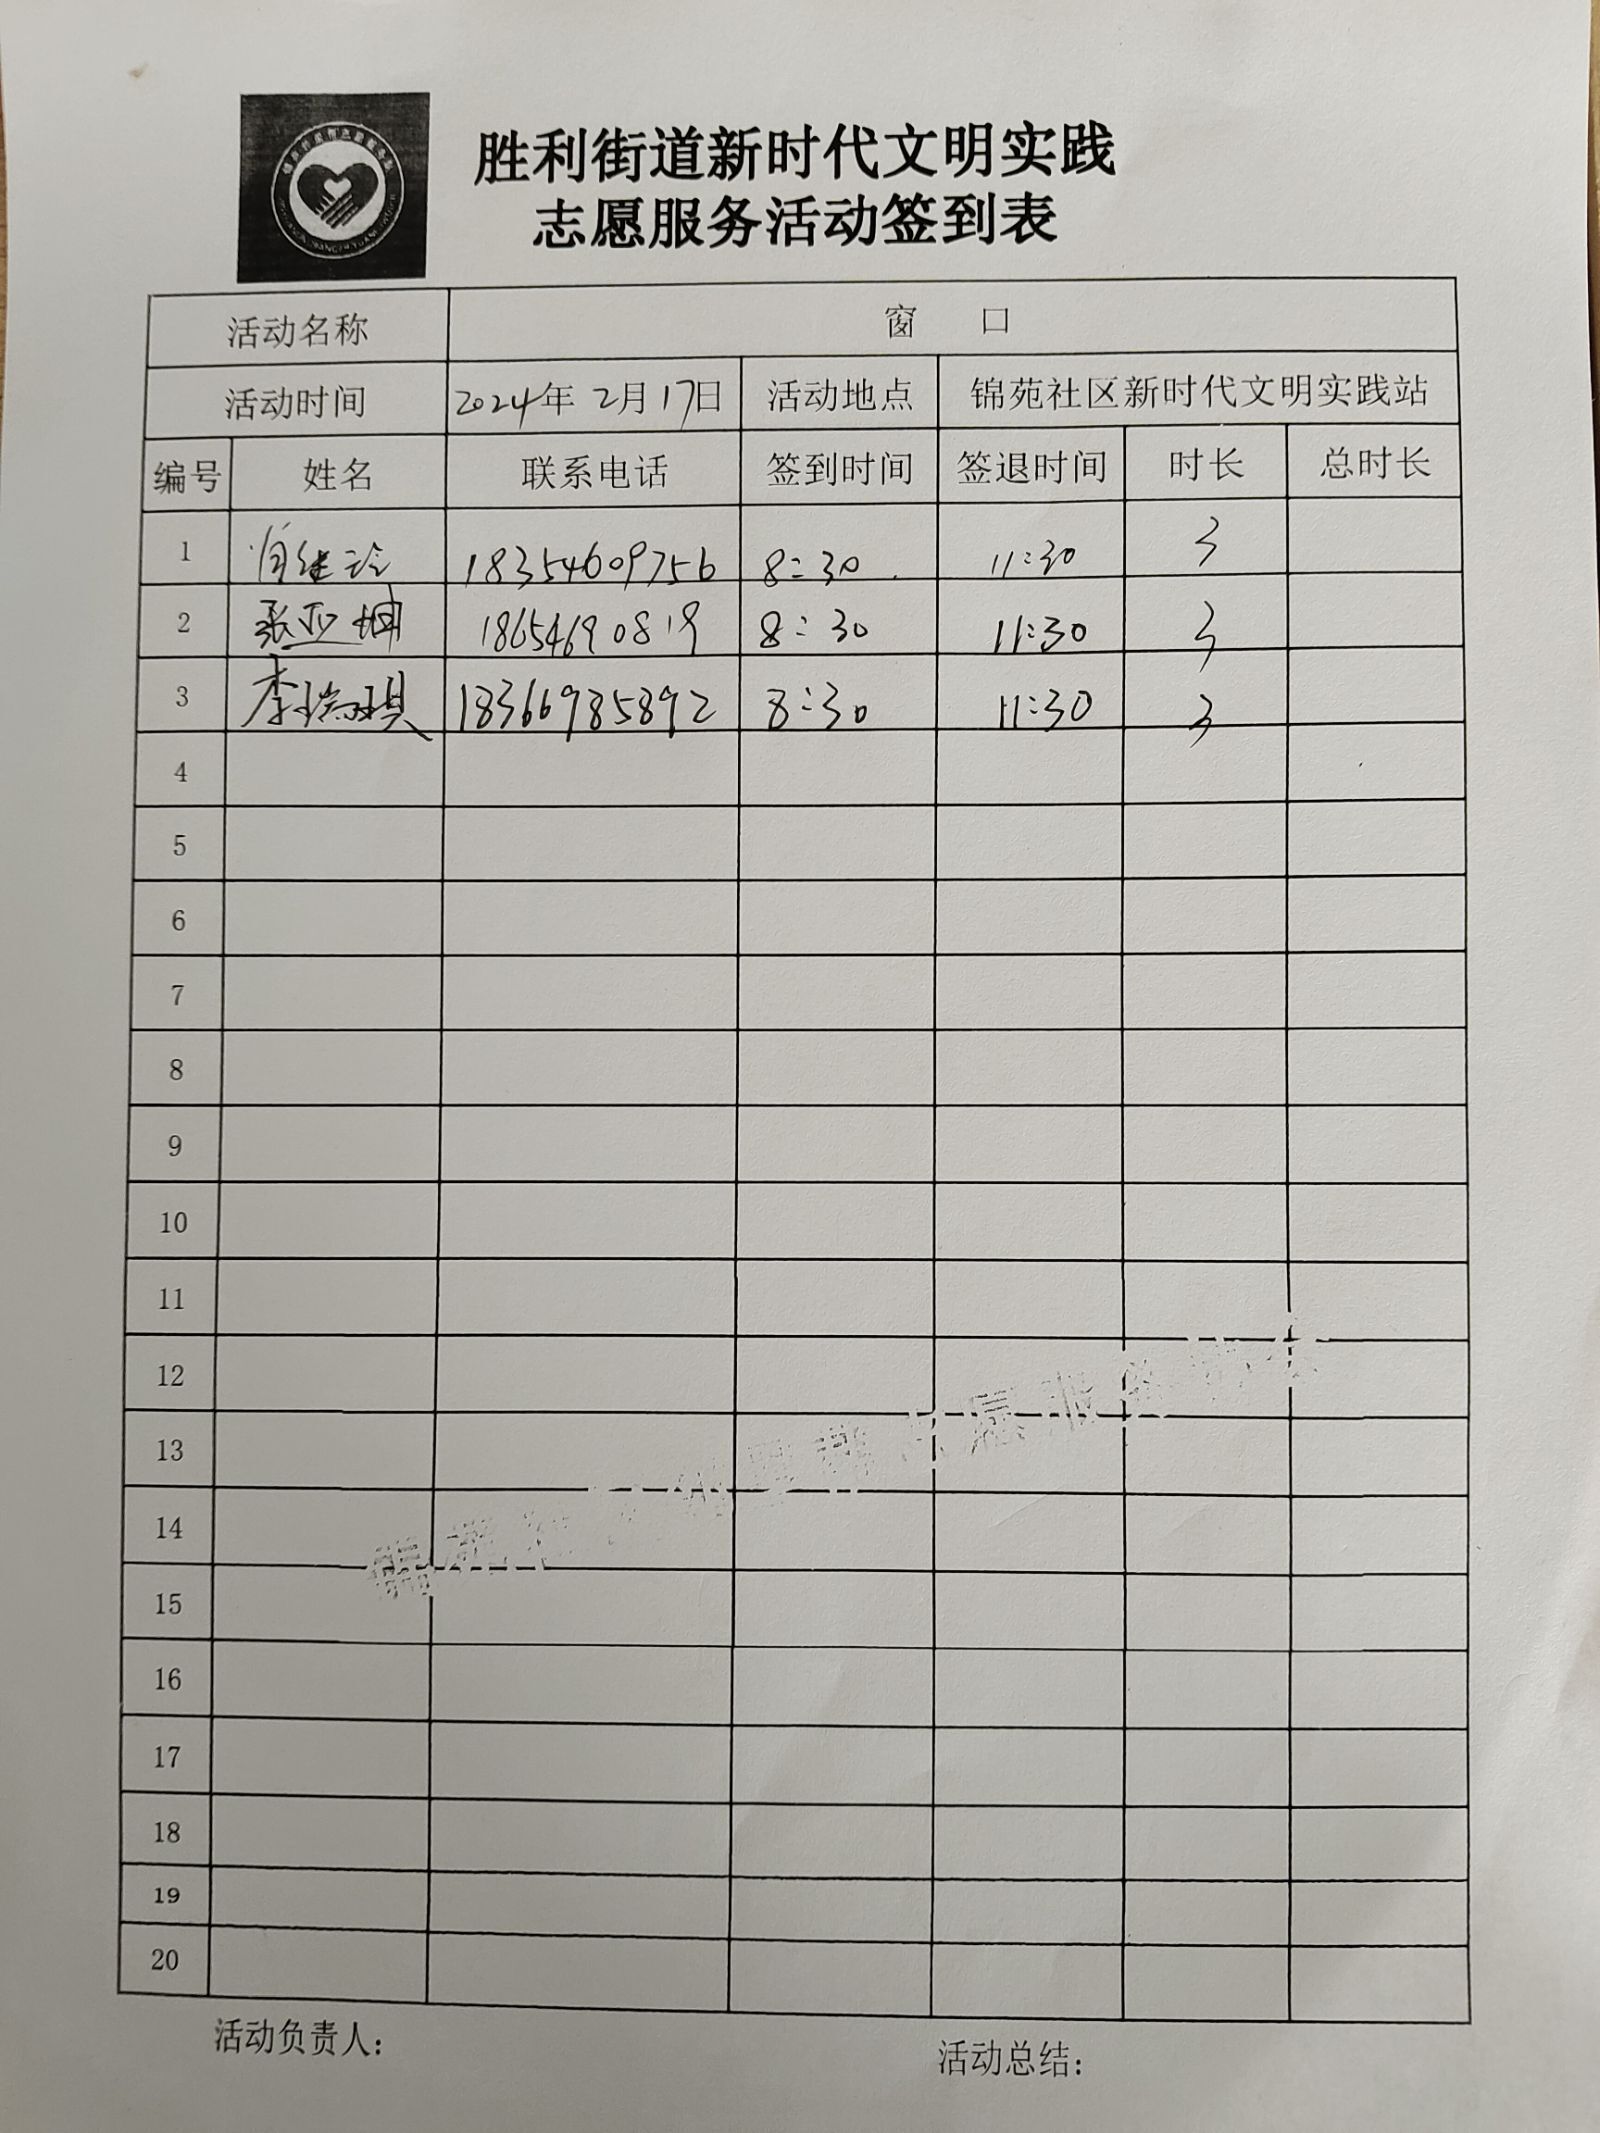 胜利街道新时代文明实践
志愿服务活动签到表
活动名称 窗 口
活动时间 2024年 2月 17日 活动地点 锦苑社区新时代文明实践站
编号 姓名 联系电话 签到时间 签退时间 时长 总时长
1 18354609756 8:30 11:30 3
2 张亚坤 18654690819 8:30 11:30 3
3 李瑞琪 18366985892 8:30 11:30 3
4
5
6
7
8
9
10
11
12
13
14
15
16
17
18
19
20
活动负责人: 活动总结: